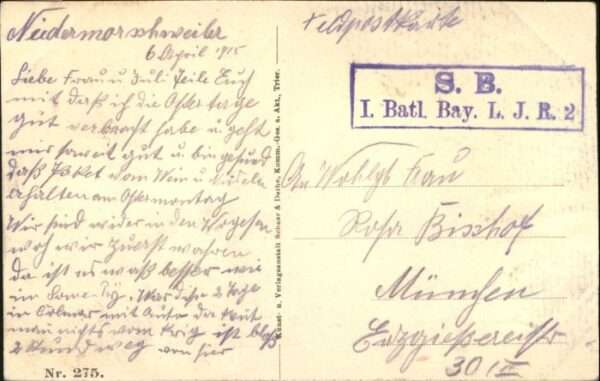 Niedermorschweiler
6 April 1915
Liebe Frau u Juli Teile Euch
mit daß ich die Ostertage
gut verbracht habe u. geht
mir soweit gut u. bin gesund
daß Paket vom Wein u Nudeln
erhalten am Ostermontag
Wir sind wieder in den Vogesen
wo wir zuerst wahren
da ist es waß besser wie
in 2 Tage
in Colmar mit Auto da
man nichts vom Krig ist bloß
2 Stund weg von hier
Nr. 275.
Kunst- u. Verlagsanstalt Schaar & Dathe, Komm.-Ges. a. Akt., Trier.
Feldpostkarte
S. B.
I. Batl. Bay. L. J. R. 2
An Wohlgb Frau
Rosa Bischof
München
Erzgießereistr
30/II